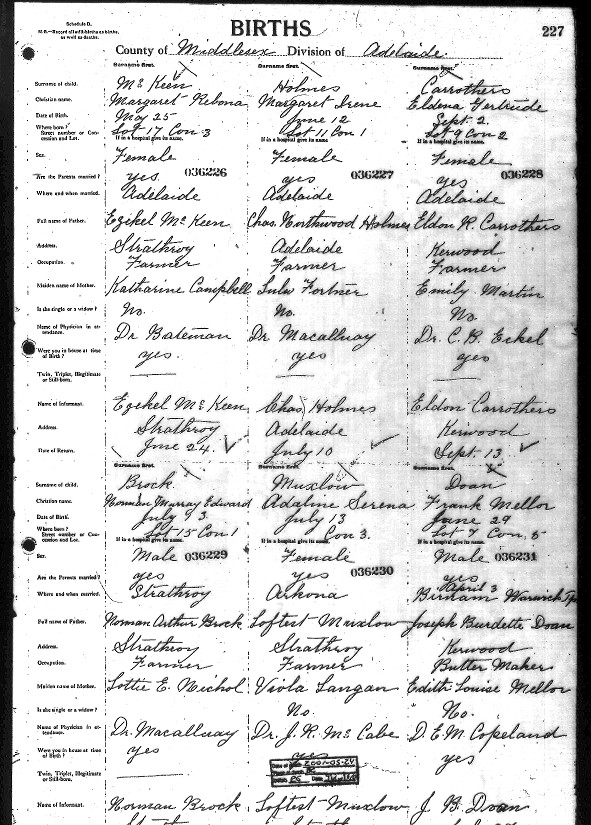 Schedule B.
N.B.—Record all still-births as births, as well as deaths.
BIRTHS
227
County of Middlesex Division of Adelaide.
Surname first. Surname first. Surname first.
Surname of child. McKeen Holmes Carrothers
Christian name. Margaret Rebona Margaret Irene Eldena Gertrude
Date of Birth. May 25 June 12 Sept. 2
Where born? Street number or Concession and Lot. Lot 17 Con 3 Lot 11 Con 1 Lot 9 Con 2
If in a hospital give its name. If in a hospital give its name. If in a hospital give its name.
Sex. Female Female Female
036226 036227 036228
Are the Parents married? yes. yes yes
Where and when married. Adelaide Adelaide Adelaide
Full name of Father. Ezikel McKeen Chas. Northwood Holmes Eldon R. Carrothers
Address. Strathroy Adelaide Kerwood
Occupation. Farmer Farmer Farmer
Maiden name of Mother. Katharine Campbell Lulu Fortner Emily Martin
Is she single or a widow? No. No. No
Name of Physician in attendance. Dr Bateman Dr Macalluay Dr. C. B. Eckel
Were you in house at time of Birth? yes. yes yes
Twin, Triplet, Illegitimate or Still-born.
Name of Informant. Ezekel McKeen Chas Holmes Eldon Carrothers
Address. Strathroy Adelaide Kerwood
Date of Return. June 24. July 10 Sept. 13
Surname first. Surname first. Surname first.
Surname of child. Brock Muxlow Doan
Christian name. Norman Murray Edward Adaline Serena Frank Mellor
Date of Birth. July July 13 June 29
Where born? Street number or Concession and Lot. Lot 15 Con 1 Con 3. Lot 7 Con. 5
If in a hospital give its name. If in a hospital give its name. If in a hospital give its name.
Sex. Male 036229 Female Male 036231
036230
Are the Parents married? yes yes yes
April 3
Where and when married. Strathroy Arkona Birnam Warwick Tp
Full name of Father. Norman Arthur Brock Loftest Muxlow Joseph Burdette Doan
Address. Strathroy Strathroy Kerwood
Occupation. Farmer Farmer Butter Maker
Maiden name of Mother. Lottie E. Nichol Viola Langan Edith Louise Mellor
Is she single or a widow? No. No.
Name of Physician in attendance. Dr. Macalluay Dr. J. R. McCabe D. E. M. Copeland
Were you in house at time of Birth? yes yes yes
Twin, Triplet, Illegitimate or Still-born.
Name of Informant. Norman Brock Loftest Muxlow J. B. Doan